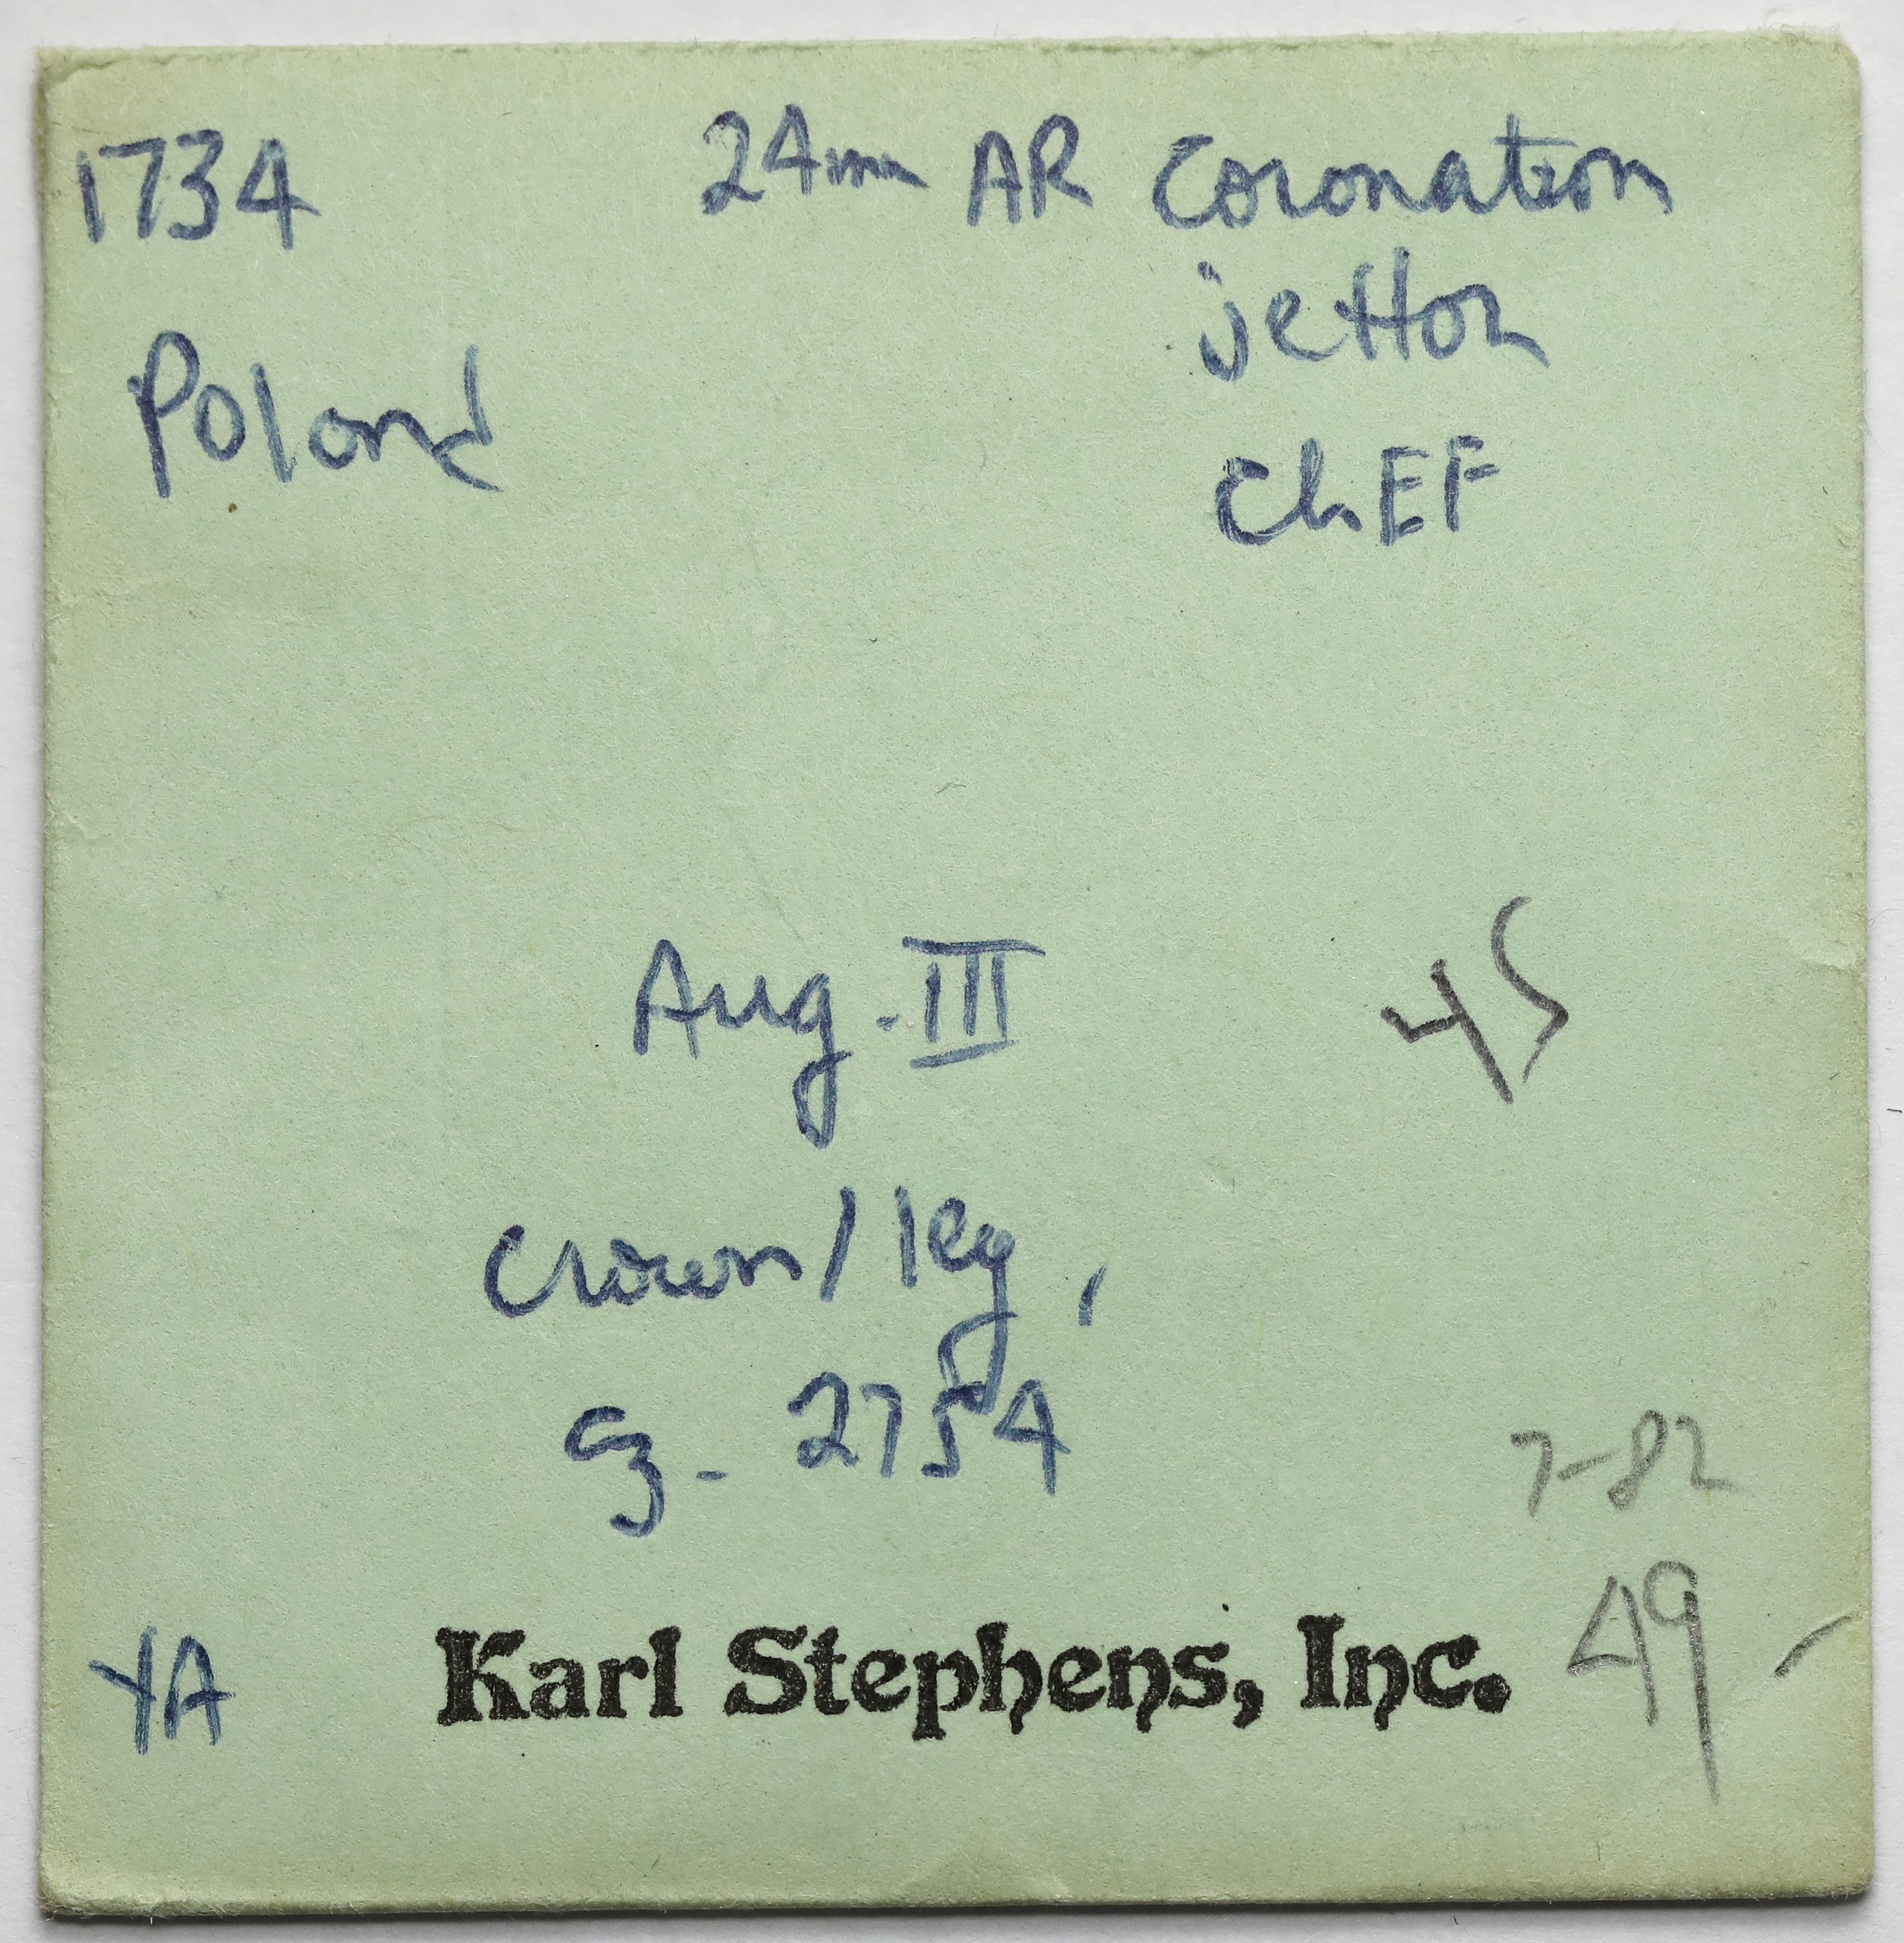 1734 24mm AR Coronation
jetton
Poland
Ch EF
Aug. III
45
Crown / leg,
Cz - 2754
7-82
49 -
YA Karl Stephens, Inc.